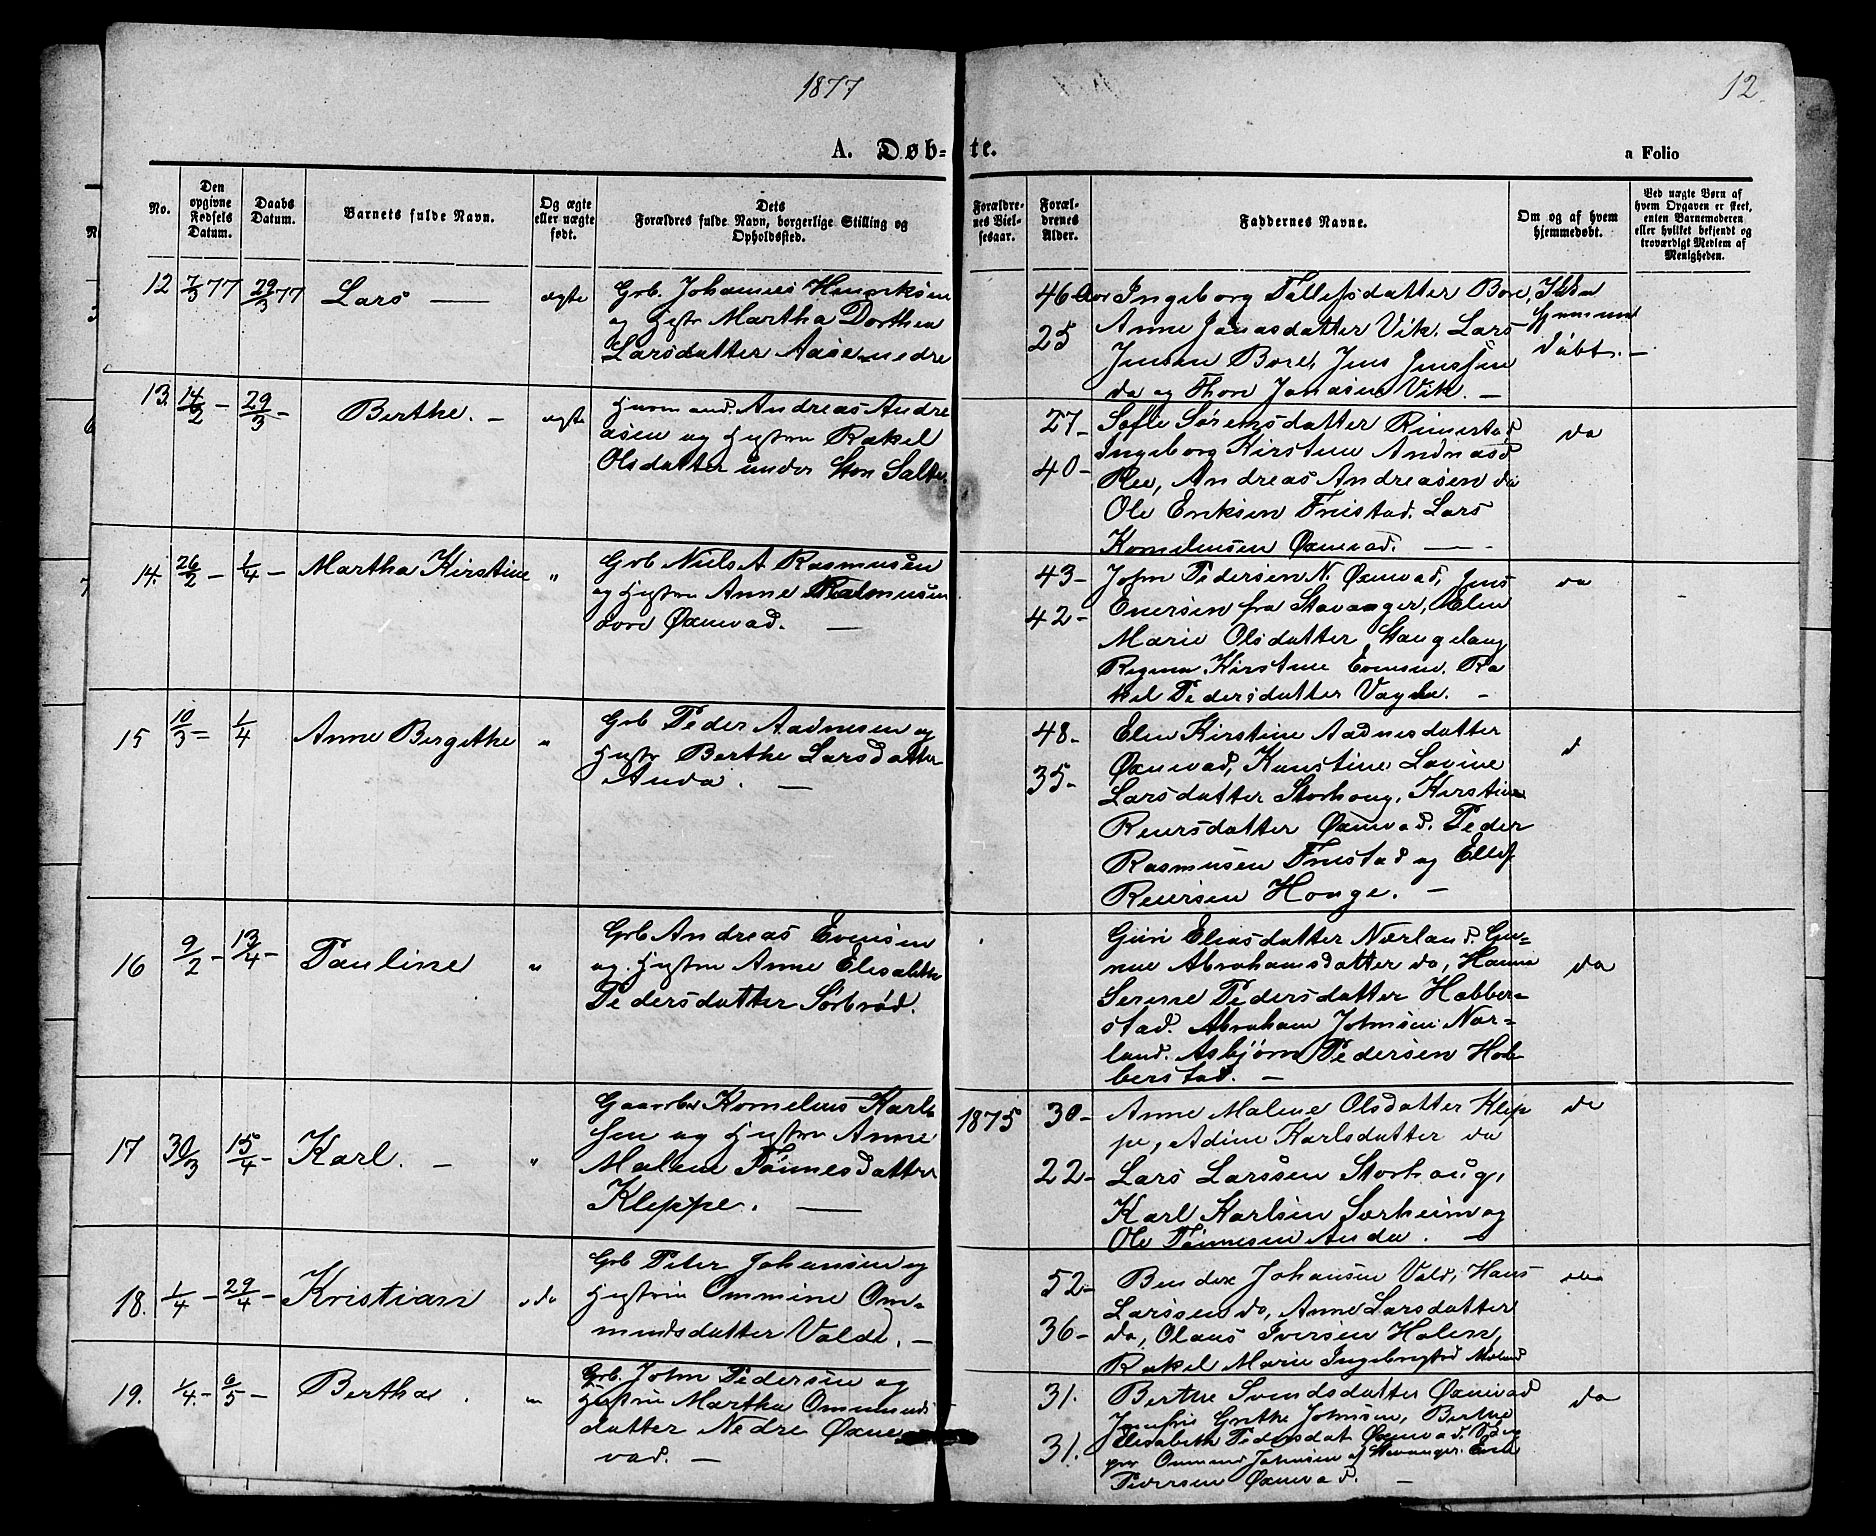 1877
12
A. Døbte.
a Folio
No.
Den opgivne Fødsels Datum.
Daabs Datum.
Barnets fulde Navn.
Og ægte eller uægte født.
Dets Forældres fulde Navn, borgerlige Stilling og Opholdssted.
Forældrenes Vielsesaar.
Forældrenes Alder.
Faddernes Navne.
Om og af hvem hjemmedøbt.
Ved uægte Børn af hvem Opgaven er skeet, enten Barnemoderen eller hvilket bekjendt og troværdigt Medlem af Menigheden.
12 7/3 77 29/3 77 Lars — ægte
Grb. Johannes Henriksen
og Hustr Martha Dorthea
Larsdatter Aase nedre
46 Aar
25
Ingeborg Tollefsdatter Bore,
Anne Jonasdatter Vik. Lars
Jensen Bore, Jens Jenssen
do og Thore Jonasen Vik. —
Ikke
hjemme
døbt. —
13. 14/2 – 29/3 – Berthe. – ægte
Huusmand. Andreas Andre
asen og Hustru Rakel
Olsdatter under Store Salte.
27-
40-
Sofie Sørensdatter Reimestad
Ingeborg Kirstine
Ree, Andreas Andreasen do
Ole Eriksen Friestad. Lars
Kornelius­sen Øxnevad. —
do
14. 26/2 – 1/4 – Martha Kirstine "
Grb Niels A Rasmussen
og Hustru Anne Rasmussen
øvre Øxnevad. —
43-
42-
John Pedersen N. Øxnevad, Jens
Enersen fra Stavanger, Elen
Marie Olsdatter Stangeland
Regine Kirstine Evensen. Ra
kel Pedersdatter Vagle. -
do
15 10/3 – 1/4 Anne Bergithe "
Grb Peder Aadnesen og
Hustr Berthe Larsdatter
Anda. —
48-
35-
Elen Kirstine Aadnesdatter
Øxnevad, Kanstine Lovine
Larsdatter Storhoug, Kirstine
Reiersdatter Øxnevad. Peder
Rasmussen Friestad og Ellef
Reiersen Houge. —
d
16 9/2 – 13/4 – Pauline "
Grb Andreas Evensen
og Hustru Anne Elisabeth
Pedersdatter Sørbrød.
Guri Eliasdatter Nærland. Gu-
nne Abrahamsdatter do, Hanna
Serine Pedersdatter Hobber-
stad. Abraham Johnsen Nær-
land. Asbjørn Pedersen Hob-
berstad. —
do
17 30/3 15/4 – Karl. – "
Gaardbr Kornelius Karl
sen og Hustru Anne
Malene Tønnesdatter
Kleppe. —
1875
30-
22-
Anne Malene Olsdatter Klep
pe, Adine Karlsdatter do
Lars Larssen Storhaug,
Karl Karlsen Særheim og
Ole Tønnesen Anda. —
do
18. 1/4 – 29/4 – Kristian " do
Grb Peter Johansen og
Hustru Ommine Om-
mundsdatter Volde. —
52-
36-
Bendix Johansen Vold, Hans
Larssen do, Anne Larsdatter
do, Olaus Iversen Holen,
Rakel Marie
do
19. 1/4 – 6/5 – Bertha . "
Grb. John Pedersen og
Hustru Martha Ommunds
datter Nedre Øxne
vad. —
31.
31.
Berthe Svendsdatter Øxnevad
Jomfru Grethe Johnsen, Berthe
Elisabeth Pedersdat Øxnevad.
Ommund Johnsen af Stavanger.
Pedersen Øxnevad. —
do